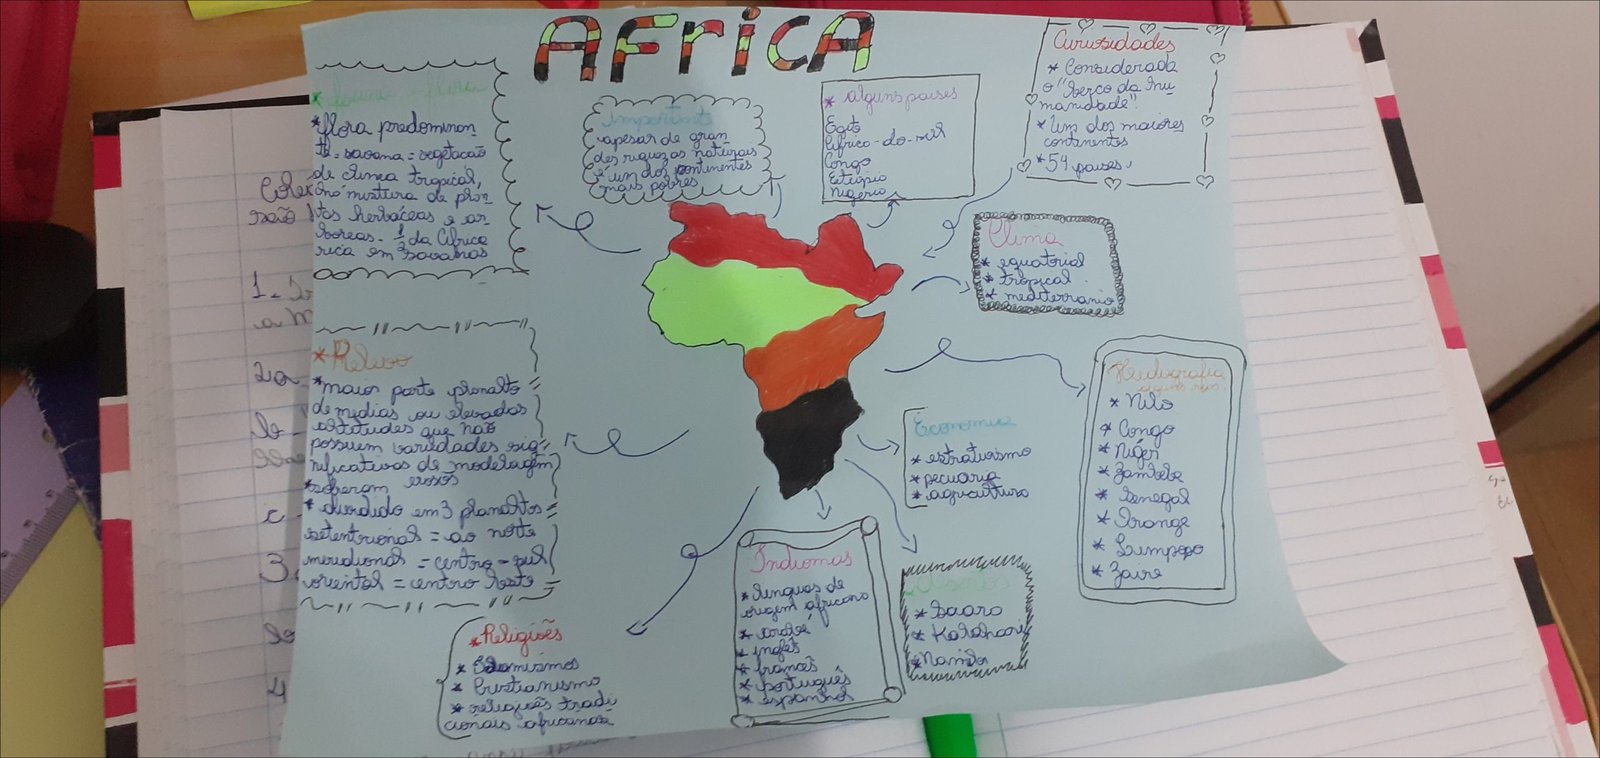 AFriCA
* fauna e flora
* flora predominan
te - savana = vegetação
de clima tropical,
há mistura de plan
tas herbáceas e ar
bóreas - 1/3 da África
rica em savanas
importante
apesar de gran
des riquezas naturais
é um dos continentes
mais pobres
* alguns países
Egito
África-do-sul
Congo
Etiópia
Nigéria
Curiosidades
* Considerada
o "berço da hu
manidade".
* Um dos maiores
continentes
* 54 países
Clima
* equatorial
* tropical
* mediterrânio
* Relevo
* maior parte planalto
de médias ou elevadas
altitudes que não
possuem variedades sig
nificativas de modelagem
* dividido em 3 planaltos
setentrional = ao norte
meridional = centro-sul
oriental = centro leste
Economia
* estrativismo
* pecuária
* agricultura
Hidrografia
alguns rios
* Nilo
* Congo
* Níger
* Zambeze
* Senegal
* Orange
* Limpopo
* Zaire
* Religiões
* Islamismos
* Cristianismo
* religiões tradi
cionais africanas
Indiomas
* línguas de
origem africana
* árabe
* inglês
* francês
* português
* espanhol
Desertos
* Saara
* Kalahari
* Namibe
1-
2a-
b-
c-
3.
4